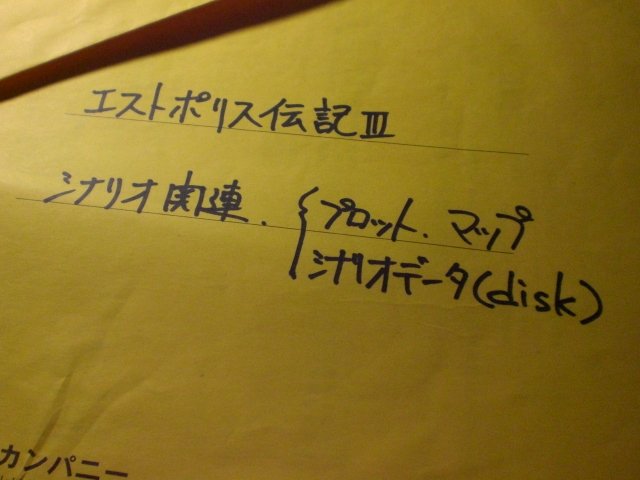 エストポリス伝記III
シナリオ関連.
プロット.マップ
シナリオデータ(disk)
カンパニー